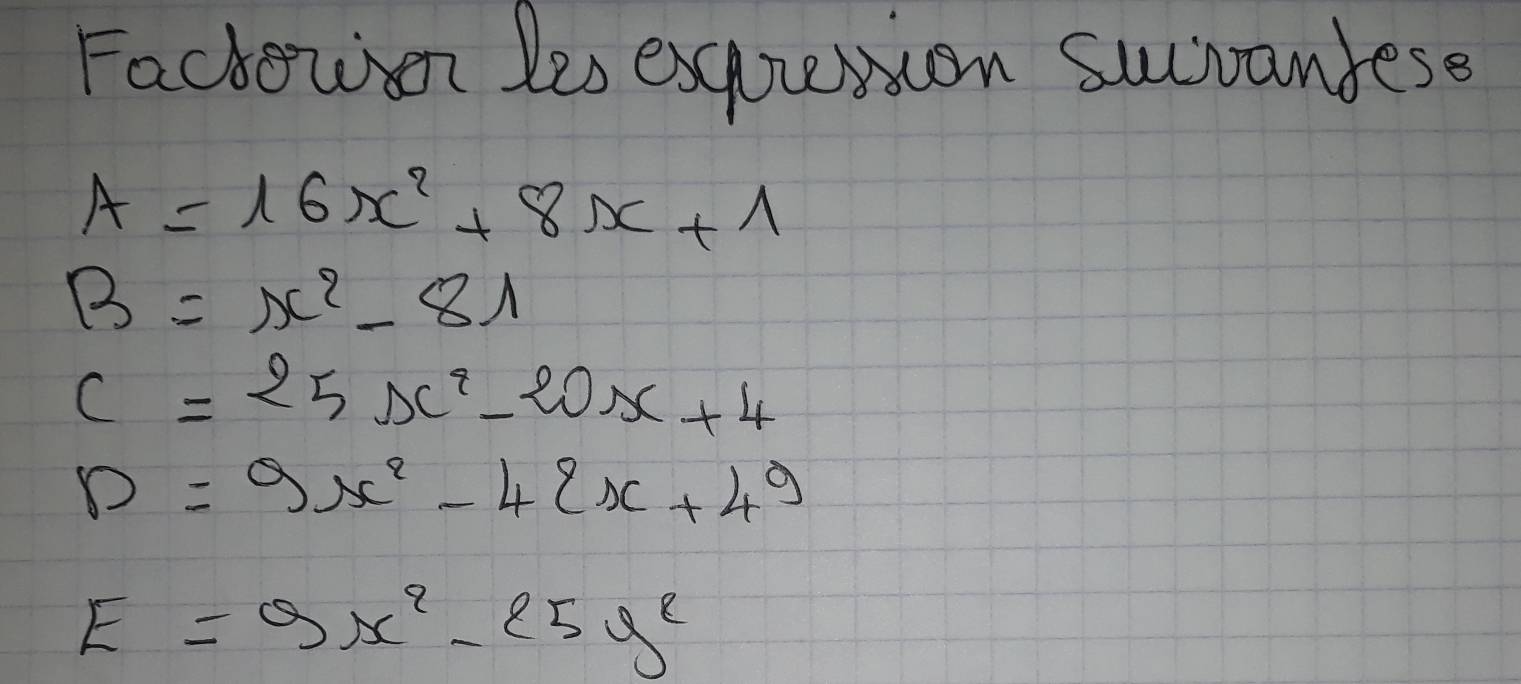 Factoriser les expression suivantes :
A = 16x² + 8x + 1
B = x² - 81
C = 25x² - 20x + 4
D = 9x² - 42x + 49
E = 9x² - 25y²